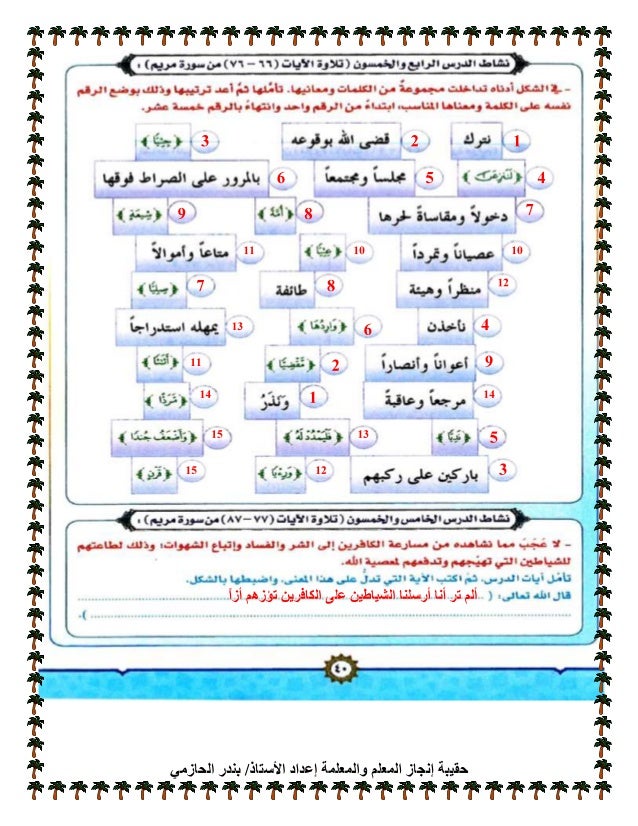 نشاط الدرس الرابع والخمسون (تلاوة الآيات (٦٦ – ٧٦) من سورة مريم) :
- في الشكل أدناه تداخلت مجموعة من الكلمات ومعانيها. تأملها ثم أعد ترتيبها وذلك بوضع الرقم
نفسه على الكلمة ومعناها المناسب، ابتداءً من الرقم واحد وانتهاءً بالرقم خمسة عشر.
نترك 1 قضى الله بوقوعه 2 ﴿جِثِيًّا﴾ 3
4 ﴿لَنَنزِعَنَّ﴾ 5 مجلساً ومجتمعاً 6 بالمرور على الصراط فوقها
7 دخولاً ومقاساة لحرها 8 9 ﴿شِيعَةٍ﴾
10 عصياناً وتمرداً 10 ﴿عِتِيًّا﴾ 11 متاعاً وأموالاً
12 منظراً وهيئة 8 طائفة 7 ﴿صِلِيًّا﴾
4 نأخذن 6 ﴿وَارِدُهَا﴾ 13 يمهله استدراجاً
9 أعواناً وأنصاراً 2 ﴿مَّقْضِيًّا﴾ 11 ﴿أَثَاثًا﴾
14 مرجعاً وعاقبة 1 وَنَذَرُ 14 ﴿مَّرَدًّا﴾
5 ﴿نَدِيًّا﴾ 13 ﴿فَلْيَمْدُدْ لَهُ﴾ 15 ﴿وَأَضْعَفُ جُندًا﴾
3 باركين على ركبهم 12 ﴿وَرِءْيًا﴾ 15 ﴿قَرْنٍ﴾
نشاط الدرس الخامس والخمسون (تلاوة الآيات (٧٧ – ٨٧) من سورة مريم) :
- لا عَجَبَ مما تشاهده من مسارعة الكافرين إلى الشر والفساد وإتباع الشهوات؛ وذلك لطاعتهم
للشياطين التي تهيّجهم وتدفعهم لمعصية الله.
تأمّل آيات الدرس، ثمّ اكتب الآية التي تدلُّ على هذا المعنى، واضبطها بالشكل.
قال الله تعالى: ( ..ألم تر أنا أرسلنا الشياطين على الكافرين تؤزهم أزاً
).
٤٠
حقيبة إنجاز المعلم والمعلمة إعداد الأستاذ/ بندر الحازمي